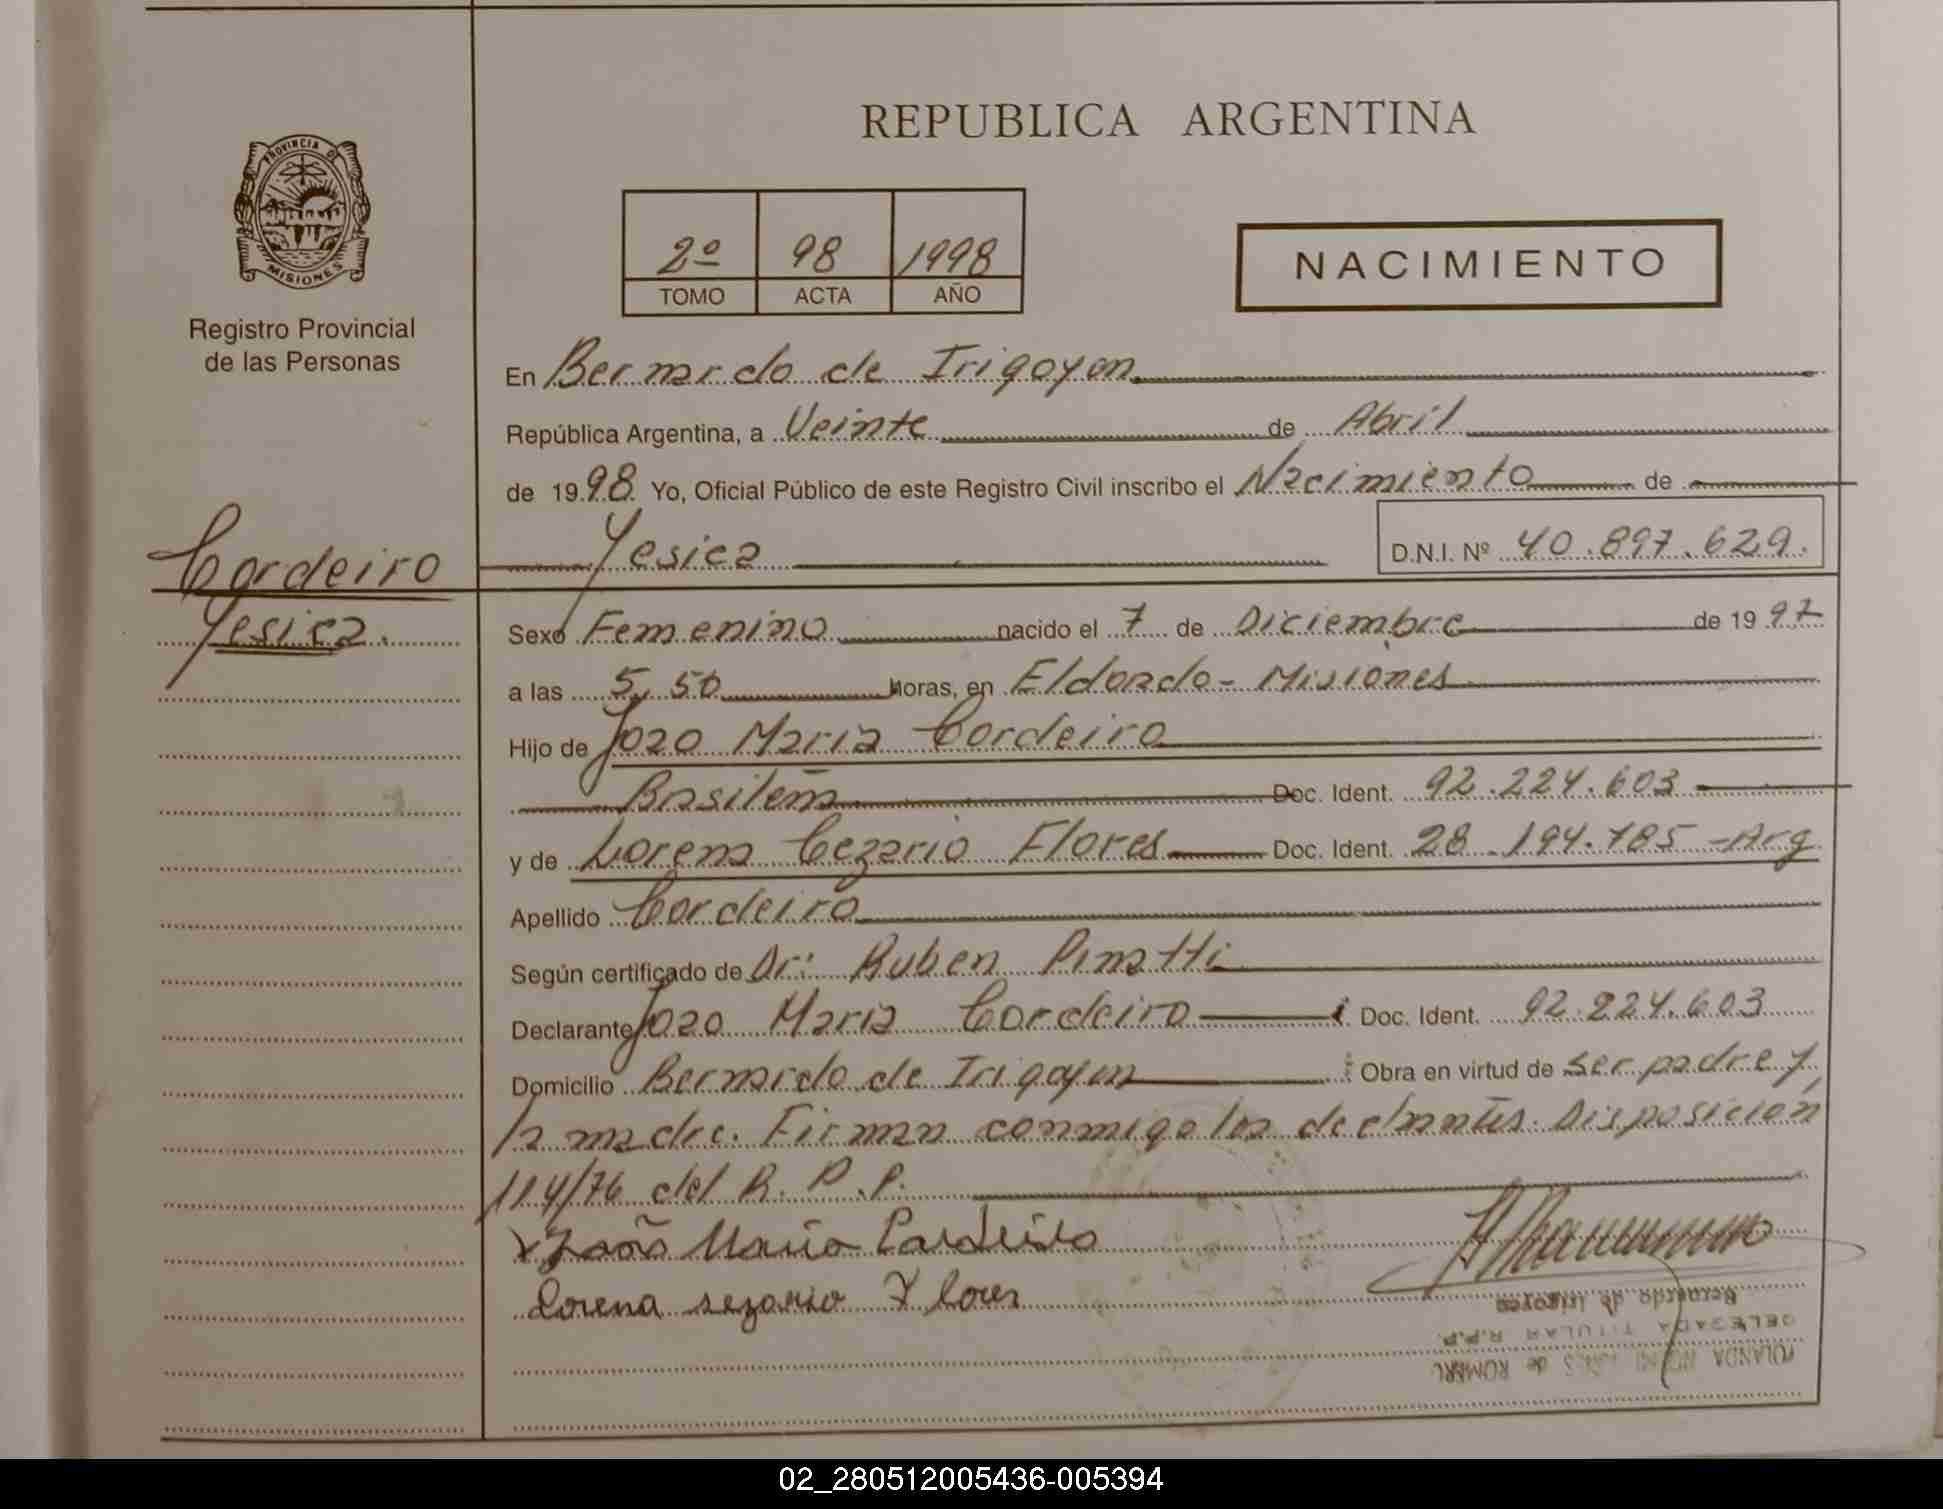 REPUBLICA ARGENTINA
PROVINCIA DE
MISIONES
Registro Provincial
de las Personas
2º 98 1998
TOMO ACTA AÑO
NACIMIENTO
En Bernardo de Irigoyen
República Argentina, a Veinte de Abril
de 1998 Yo, Oficial Público de este Registro Civil inscribo el Nacimiento de
Yesica D.N.I. Nº 40.897.629.
Cordeiro
Yesica.
Sexo Femenino nacido el 7 de Diciembre de 1997
a las 5,50 horas, en Eldorado - Misiones
Hijo de Joao Maria Cordeiro
Brasileña Doc. Ident. 92.224.603
y de Lorena Cezario Flores Doc. Ident. 28.194.785 - Arg
Apellido Cordeiro
Según certificado de Dr: Ruben Pinatti
Declarante Joao Maria Cordeiro Doc. Ident. 92.224.603
Domicilio Bernardo de Irigoyen Obra en virtud de ser padre y
la madre. Firman conmigo los declarantes. Disposición
114/76 del R. P. P.
x João Maria Cordeiro
Lorena sezario Flores
Bernardo de Irigoyen
DELEGADA TITULAR R.P.P.
YOLANDA de ROMERO
02_280512005436-005394